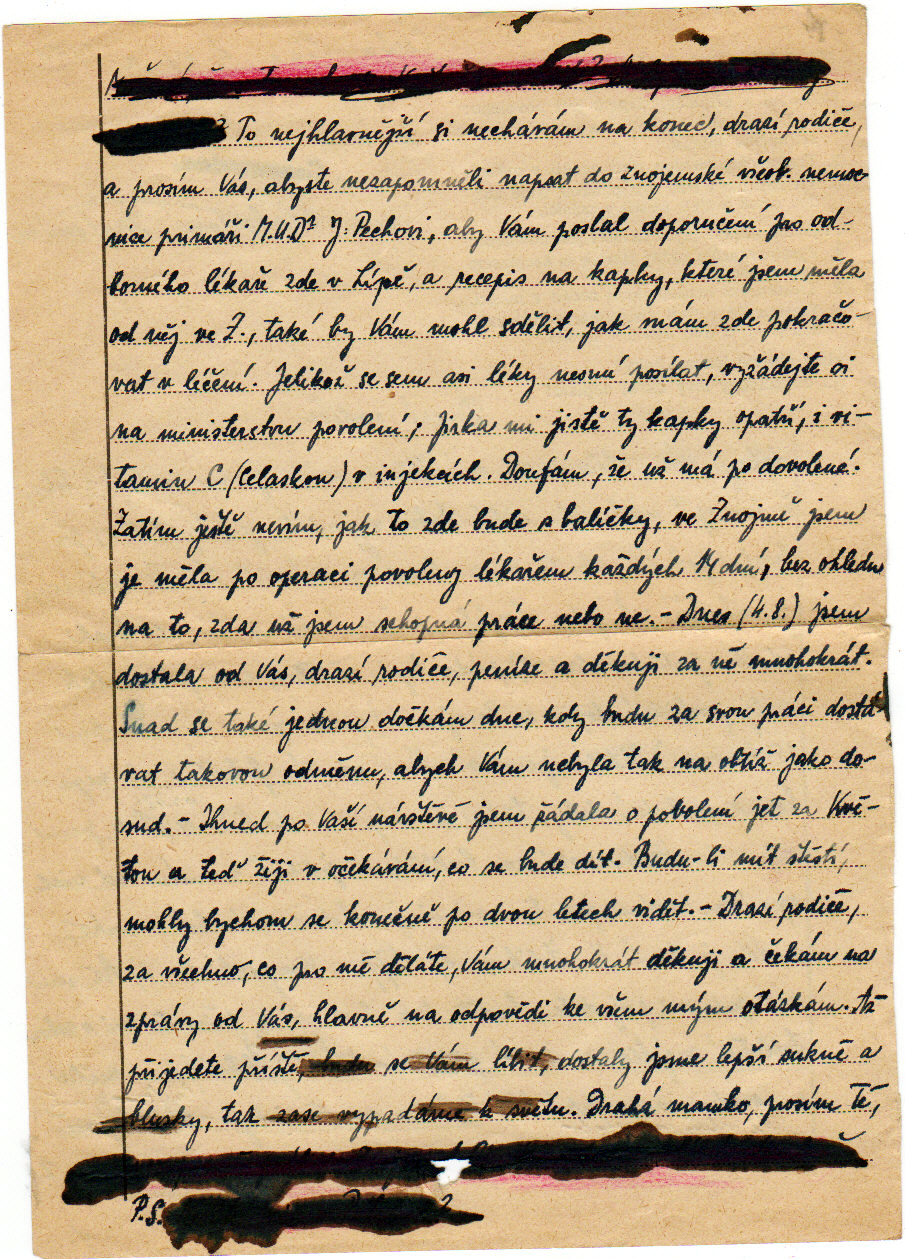 ? To nejhlavnější si nechávám na konec, drazí rodiče,
a prosím Vás, abyste nezapomněli napsat do znojemské všeob. nemoc-
nice primáři M.U.Dr J. Pechovi, aby Vám poslal doporučení pro od-
borného lékaře zde v Lípě, a recepis na kapky, které jsem měla
od něj ve Z., také by Vám mohl sdělit, jak mám zde pokračo-
vat v léčení. Jelikož se sem asi léky nesmí posílat, vyžádejte si
na ministerstvu povolení; Jirka mi jistě ty kapky opatří, i vi-
tamin C (Celaskon) v injekcích. Doufám, že už má po dovolené.
Zatím ještě nevím, jak to zde bude s balíčky, ve Znojmě jsem
je měla po operaci povoleny lékařem každých 14 dní, bez ohledu
na to, zda už jsem schopná práce nebo ne. – Dnes (4.8.) jsem
dostala od Vás, drazí rodiče, peníze a děkuji za ně mnohokrát.
Snad se také jednou dočkám dne, kdy budu za svou práci dostá-
vat takovou odměnu, abych Vám nebyla tak na obtíž jako do-
sud. – Ihned po Vaší návštěvě jsem žádala o povolení jet za Kvě-
tou a teď žiji v očekávání, co se bude dít. Budu-li mít štěstí,
mohly bychom se konečně po dvou letech vidět. – Drazí rodiče,
za všechno, co pro mě děláte, Vám mnohokrát děkuji a čekám na
zprávy od Vás, hlavně na odpovědi ke všem mým otázkám. Až
přijedete příště, budu se Vám líbit, dostaly jsme lepší sukně a
blusky, tak zase vypadáme k světu. Drahá mamko, prosím Tě,
P.S.